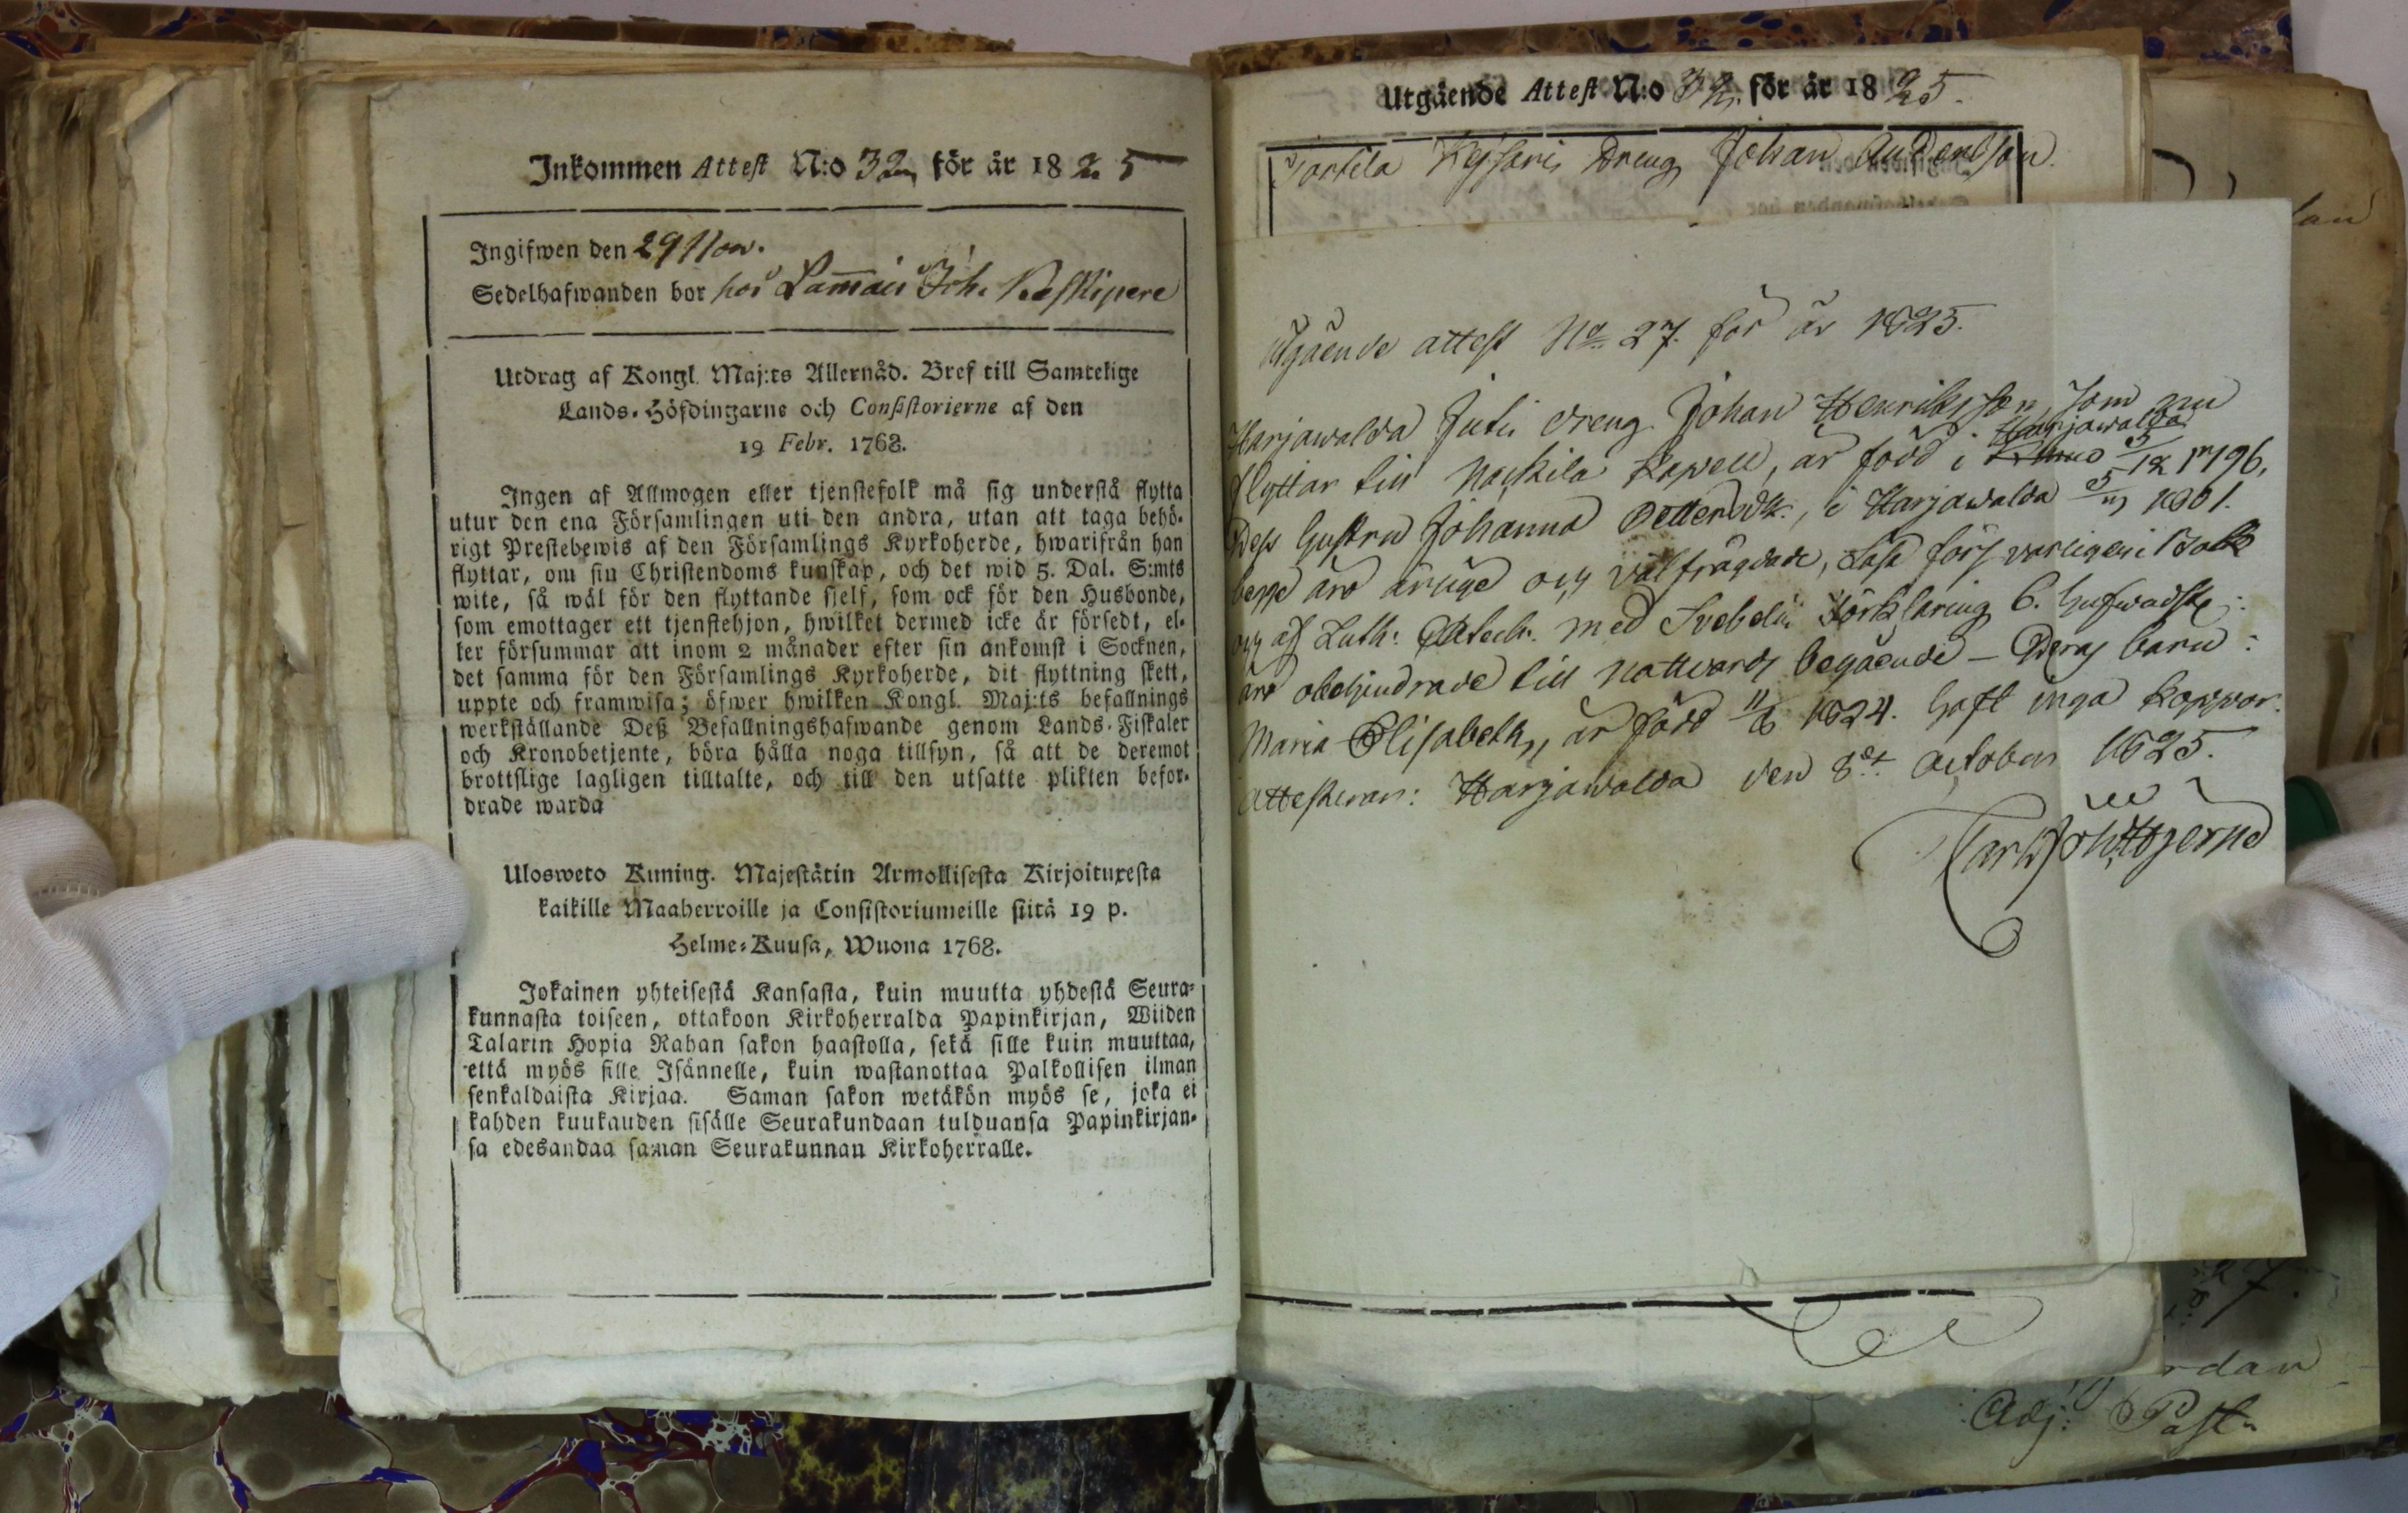 Inkommen Attest N:o 32 för år 1825
Ingifwen den 29 Nov.
Sedelhafwanden bor hos Lammais Joh. Keskipere
Utdrag af Kongl. Maj:ts Allernåd. Bref till Samtelige
Lands-Höfdingarne och Consistorierne af den
19 Febr. 1768.
Ingen af Allmogen eller tjenstefolk må sig understå flytta
utur den ena Församlingen uti den andra, utan att taga behö-
rigt Prestebewis af den Församlings Kyrkoherde, hwarifrån han
flyttar, om sin Christendoms kunskap, och det wid 5. Dal. S:mts
wite, så wäl för den flyttande sjelf, som ock för den Husbonde,
som emottager ett tjenstehjon, hwilket dermed icke är försedt, el-
ler försummar att inom 2 månader efter sin ankomst i Socknen,
det samma för den Församlings Kyrkoherde, dit flyttning skett,
uppte och framwisa; öfwer hwilken Kongl. Maj:ts befallnings
werkställande Deß Befallningshafwande genom Lands-Fiskaler
och Kronobetjente, böra hålla noga tillsyn, så att de deremot
brottslige lagligen tilltalte, och till den utsatte plikten befor-
drade warda
Ulosweto Kuning. Majestätin Armollisesta Kirjoituxesta
kaikille Maaherroille ja Consistoriumeille siitä 19 p.
Helme-Kuusa, Wuona 1768.
Jokainen yhteisestä Kansasta, kuin muutta yhdestä Seura-
kunnasta toiseen, ottakoon Kirkoherralda Papinkirjan, Wiiden
Talarin Hopia Rahan sakon haastolla, sekä sille kuin muuttaa,
että myös sille Isännelle, kuin wastanottaa Palkollisen ilman
senkaldaista Kirjaa. Saman sakon wetäkön myös se, joka ei
kahden kuukauden sisälle Seurakundaan tulduansa Papinkirjan-
sa edesandaa saman Seurakunnan Kirkoherralle.
Utgående Attest N:o 32. för år 1825.
Dreng Johan Andersson.
Utgående attest No 27. för år 1825.
Harjawalda Juti dreng Johan Henriksson, som nu
flyttar till Nackila Kapell, är född i Harjawalda 5/12 1796,
Dess hustru Johanna Pettersdr., i Harjawalda 1801.
begge äro ärlige och välfrägdade, Läsa förswarligen i Bok
och af Luth: Catech: med Svebelii Förklaring 6. Hufwudst:
äro obehindrade till Nattwards begående – Deras barn:
Maria Elisabeth, är född 11/6 1824. haft inga koppor.
Attesteras: Harjawalda den 8de October 1825.
Adj: Past.